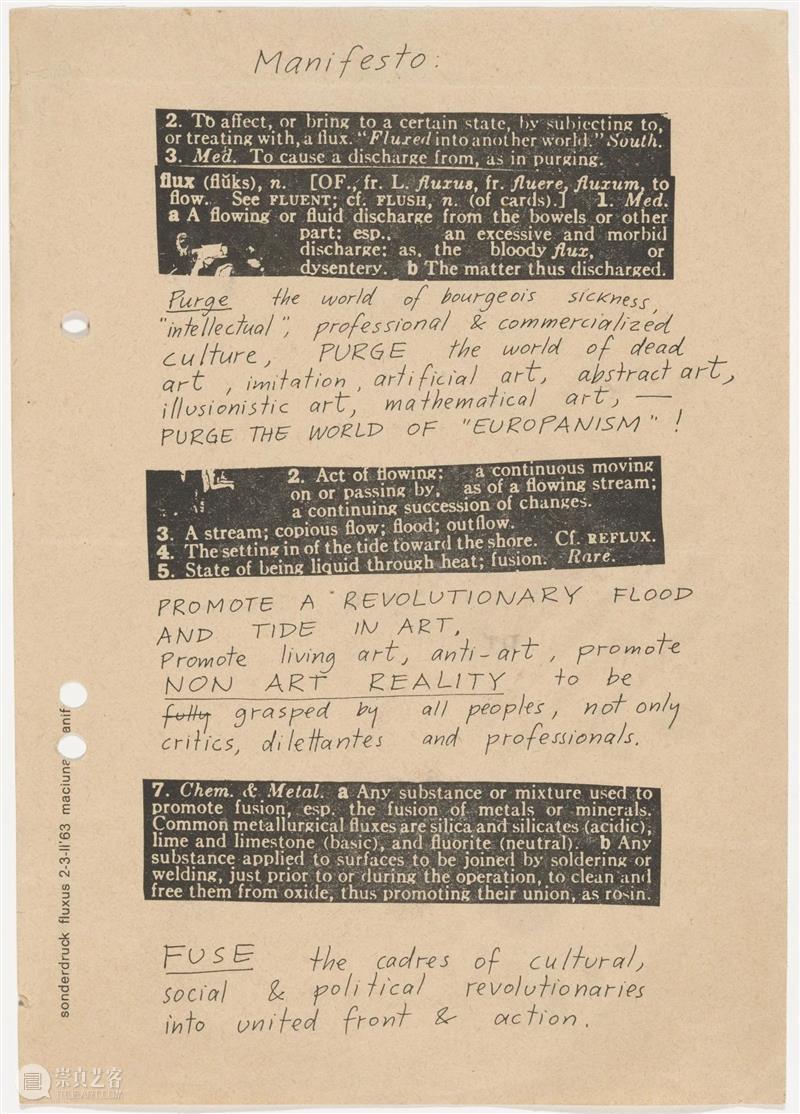 Manifesto:
2. To affect, or bring to a certain state, by subjecting to,
or treating with, a flux. "Fluxed into another world." South.
3. Med. To cause a discharge from, as in purging.
flux (flŭks), n. [OF., fr. L. fluxus, fr. fluere, fluxum, to
flow. See FLUENT; cf. FLUSH, n. (of cards).] 1. Med.
a A flowing or fluid discharge from the bowels or other
part: esp., an excessive and morbid
discharge: as, the bloody flux, or
dysentery. b The matter thus discharged.
Purge the world of bourgeois sickness,
"intellectual", professional & commercialized
culture, PURGE the world of dead
art, imitation, artificial art, abstract art,
illusionistic art, mathematical art, —
PURGE THE WORLD OF "EUROPANISM"!
2. Act of flowing: a continuous moving
on or passing by, as of a flowing stream;
a continuing succession of changes.
3. A stream; copious flow; flood; outflow.
4. The setting in of the tide toward the shore. Cf. REFLUX.
5. State of being liquid through heat; fusion. Rare.
PROMOTE A REVOLUTIONARY FLOOD
AND TIDE IN ART,
Promote living art, anti-art, promote
NON ART REALITY to be
fully grasped by all peoples, not only
critics, dilettantes and professionals.
7. Chem. & Metal. a Any substance or mixture used to
promote fusion, esp. the fusion of metals or minerals.
Common metallurgical fluxes are silica and silicates (acidic),
lime and limestone (basic), and fluorite (neutral). b Any
substance applied to surfaces to be joined by soldering or
welding, just prior to or during the operation, to clean and
free them from oxide, thus promoting their union, as rosin.
FUSE the cadres of cultural,
social & political revolutionaries
into united front & action.
sonderdruck fluxus 2-3-II'63 maciuna anif
崇真艺客
TRUEART.COM